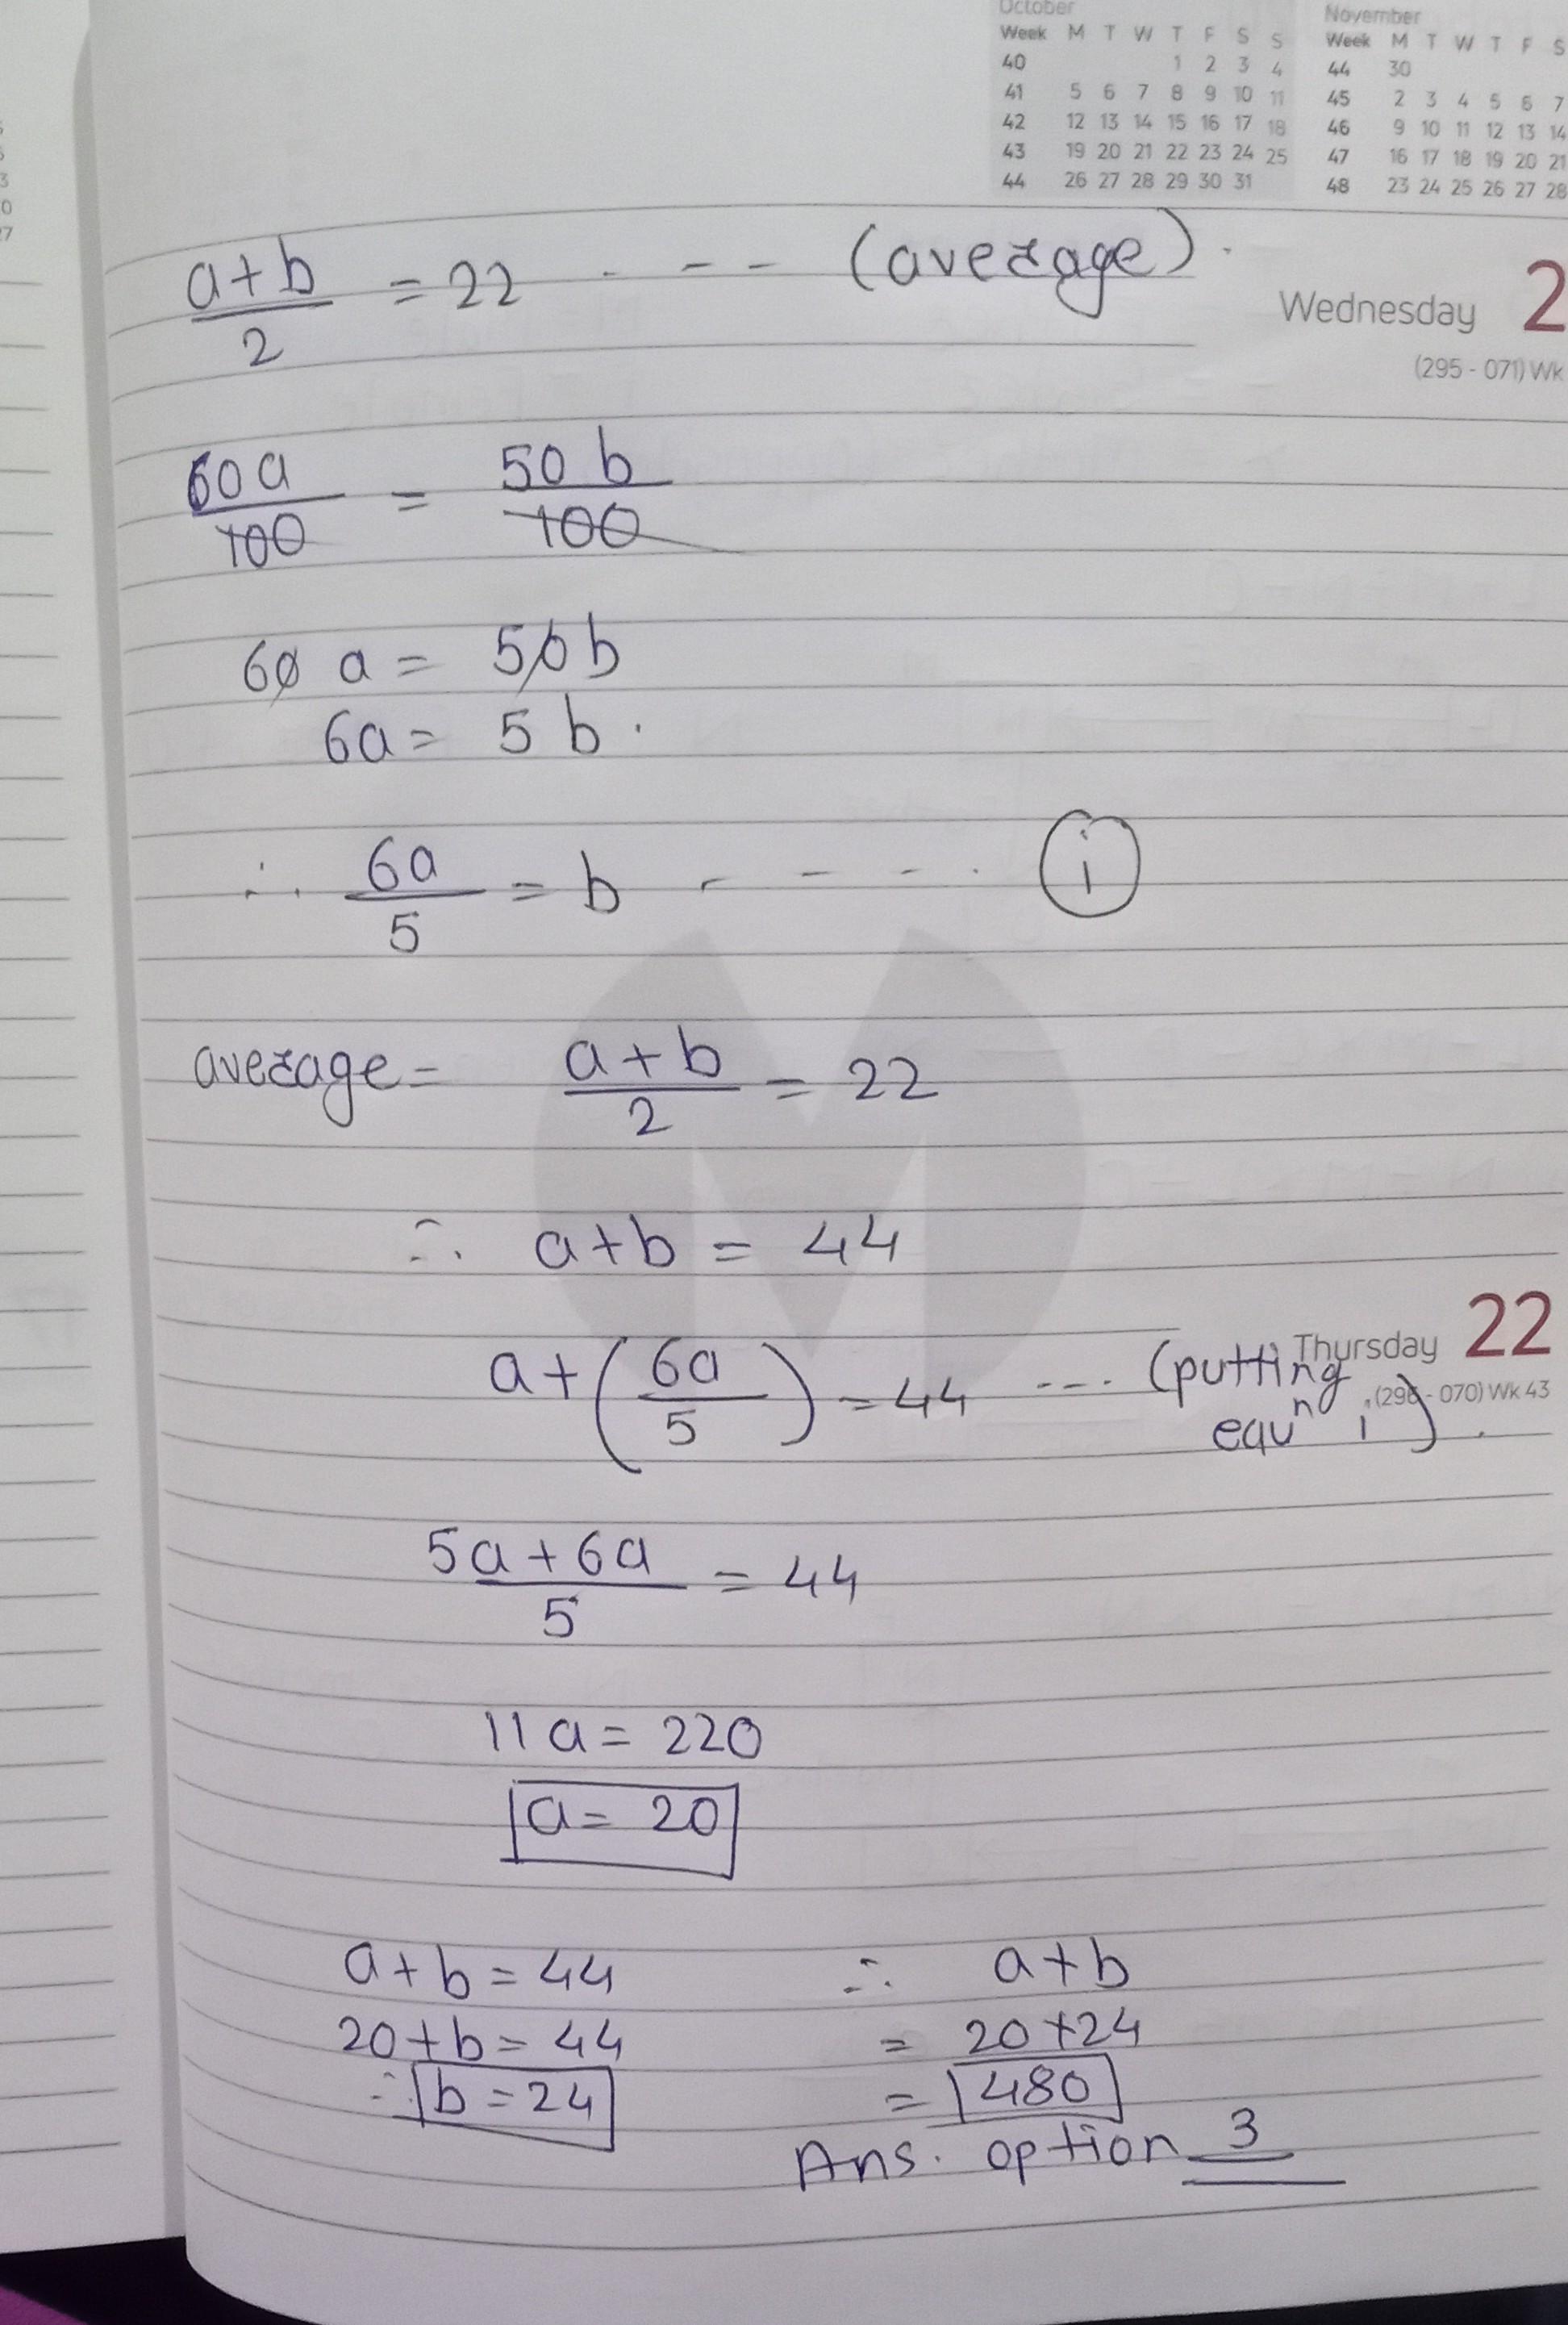 October
Week M T W T F S S
40 1 2 3 4
41 5 6 7 8 9 10 11
42 12 13 14 15 16 17 18
43 19 20 21 22 23 24 25
44 26 27 28 29 30 31
November
Week M T W T F S
44 30
45 2 3 4 5 6 7
46 9 10 11 12 13 14
47 16 17 18 19 20 21
48 23 24 25 26 27 28
Wednesday 2
(295 - 071) Wk
a+b/2 = 22 - - - (average).
60a/100 = 50b/100
60 a = 50 b
6a = 5 b.
∴ 6a/5 = b - - - - i
average = a+b/2 = 22
∴ a+b = 44
Thursday 22
(296 - 070) Wk 43
a+(6a/5) = 44 --- (putting
equⁿ i).
5a+6a/5 = 44
11a = 220
a = 20
a+b = 44
20+b = 44
∴ b = 24
∴ a+b
= 20+24
= 480
Ans. option 3